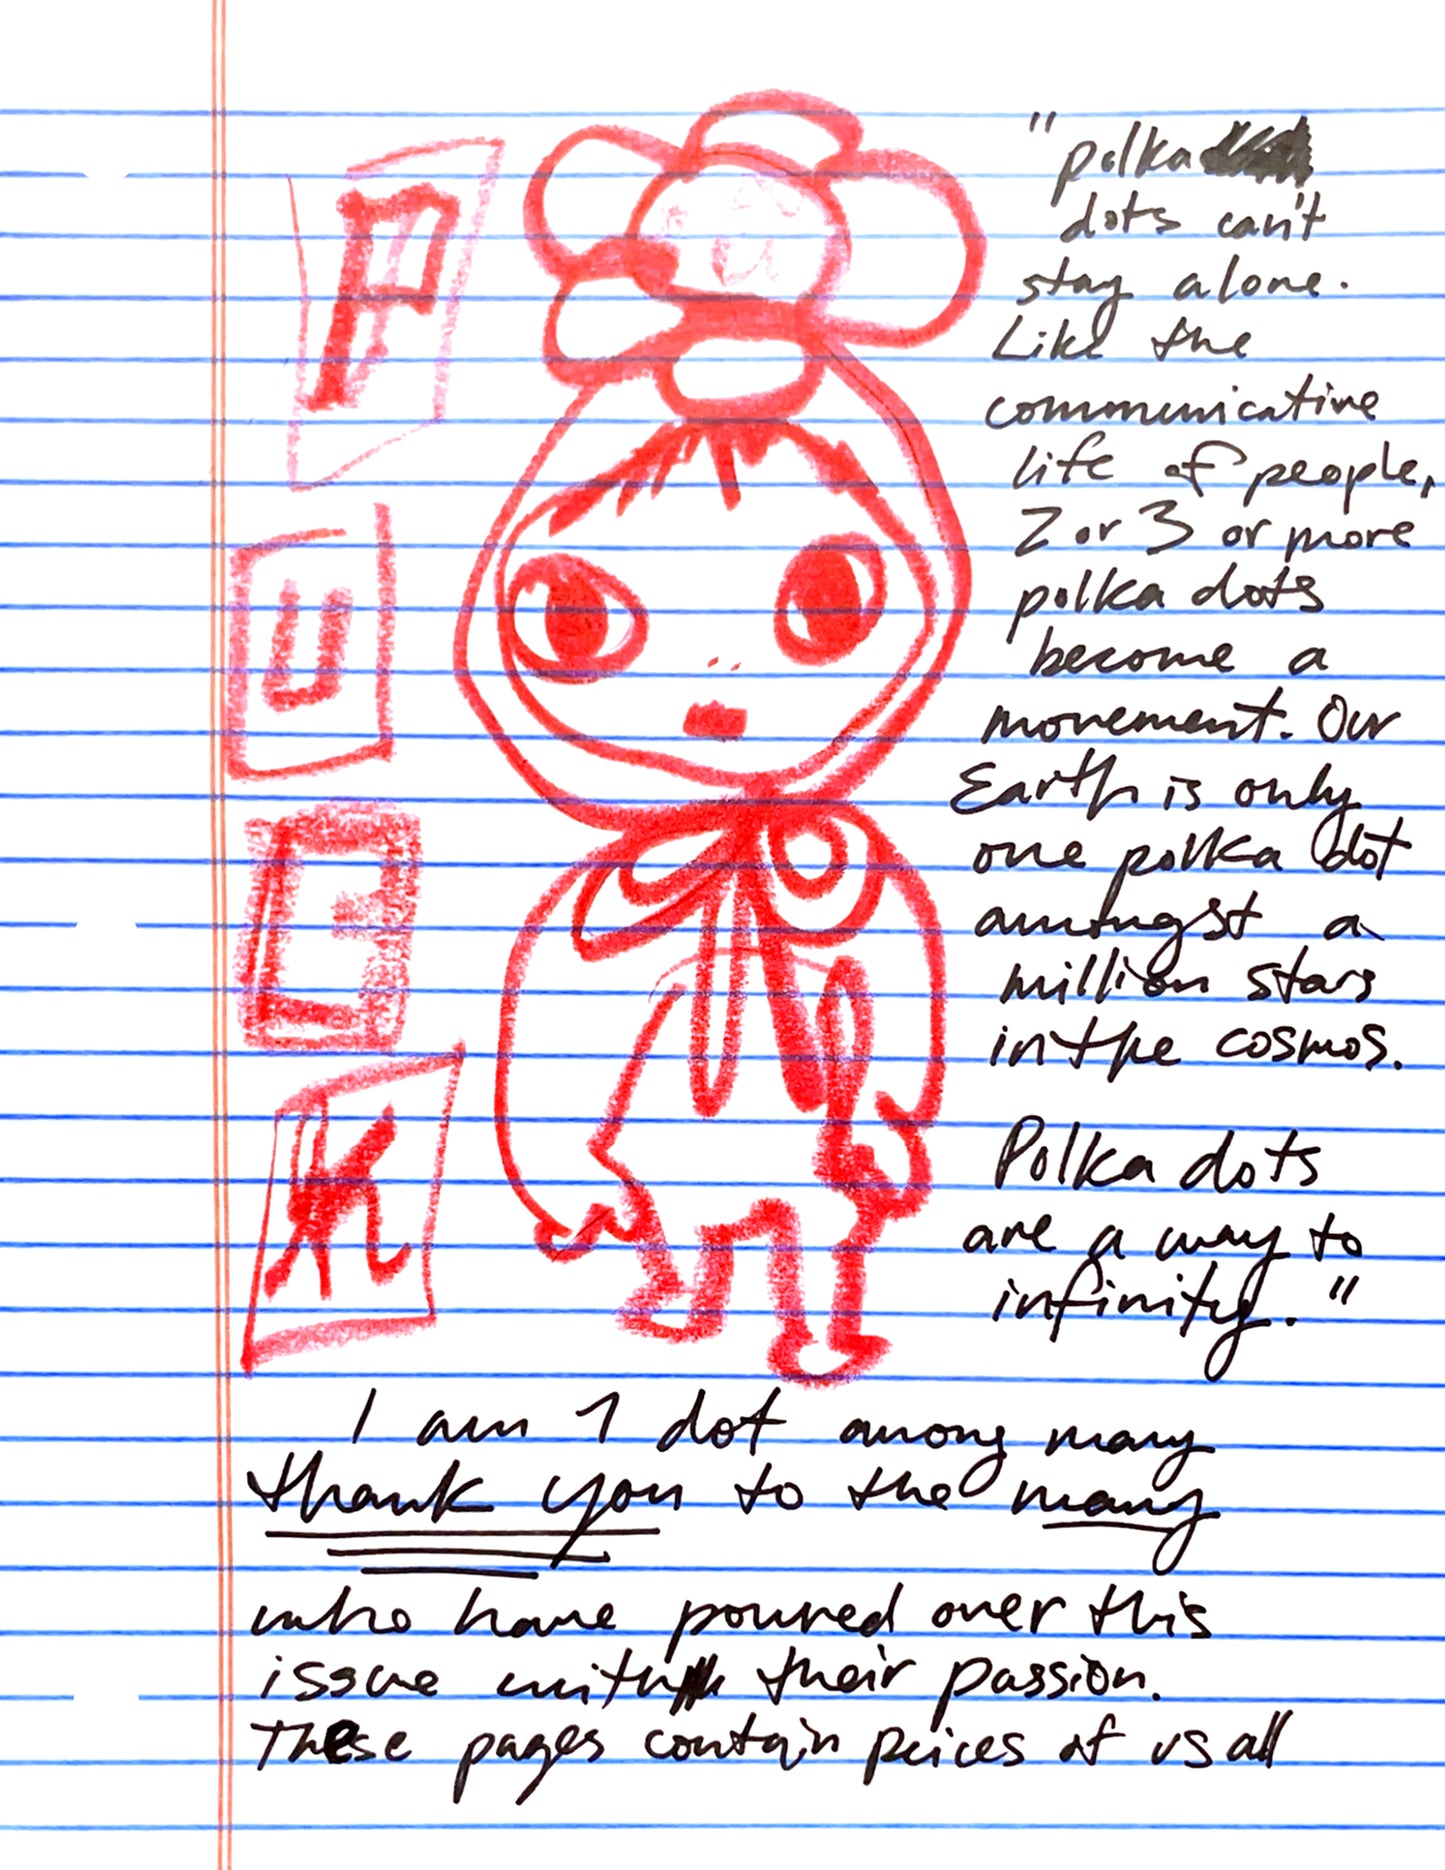 P
U
C
K
"polka
dots can't
stay alone.
Like the
communicative
life of people,
2 or 3 or more
polka dots
become a
movement. Our
Earth is only
one polka dot
amongst a
million stars
in the cosmos.
Polka dots
are a way to
infinity."
I am 1 dot among many
thank you to the many
who have poured over this
issue with their passion.
These pages contain peices of us all